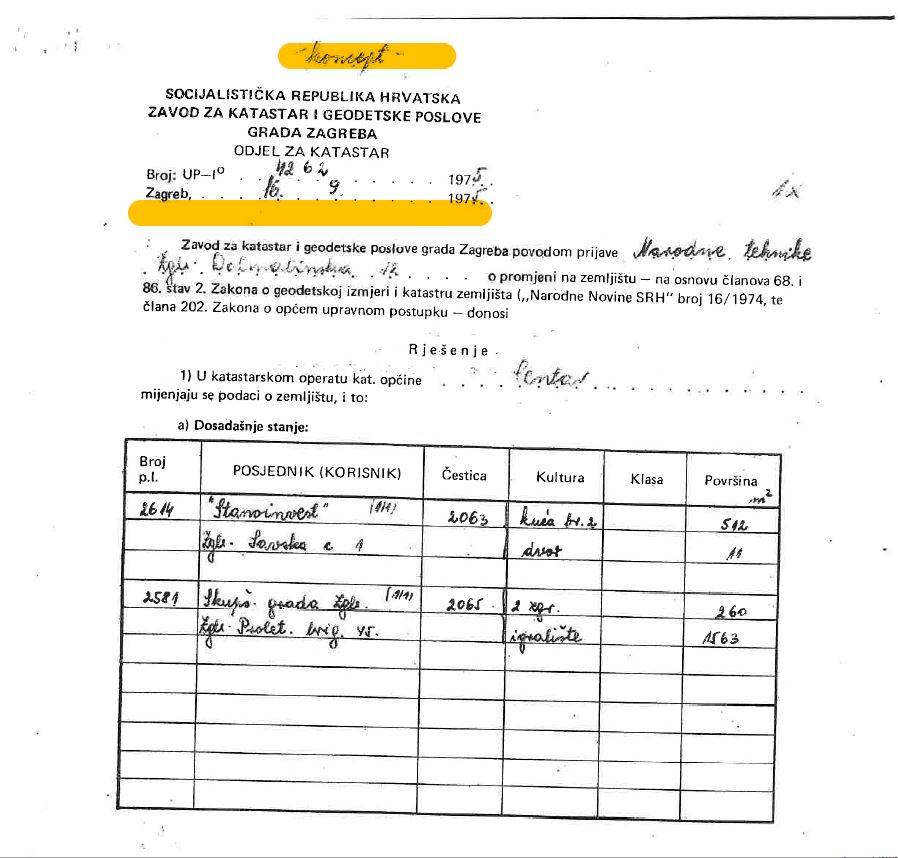 - koncept -
SOCIJALISTIČKA REPUBLIKA HRVATSKA
ZAVOD ZA KATASTAR I GEODETSKE POSLOVE
GRADA ZAGREBA
ODJEL ZA KATASTAR
Broj: UP–I° . . 4262 . . . . . . 1975.
Zagreb, . . . . 16. 9 . . . . . . 1975.
1x
Zavod za katastar i geodetske poslove grada Zagreba povodom prijave Narodne tehnike
Zgb. Dalmatinska 12 . . . . . o promjeni na zemljištu — na osnovu članova 68. i
86. stav 2. Zakona o geodetskoj izmjeri i katastru zemljišta („Narodne Novine SRH" broj 16/1974, te
člana 202. Zakona o općem upravnom postupku — donosi
Rješenje
1) U katastarskom operatu kat. općine . . . . Centar . . . . . . . . . . .
mijenjaju se podaci o zemljištu, i to:
a) Dosadašnje stanje:
Broj p.l. POSJEDNIK (KORISNIK) Čestica Kultura Klasa Površina m²
2614 "Stanoinvest" (1/1) 2063 kuća br. 2 512
Zgb. Savska c 1 dvor 11
2581 Skupš. grada Zgb. (1/1) 2065 2 zgr. 260
Zgb. Prolet. brig. 45. igralište 1563